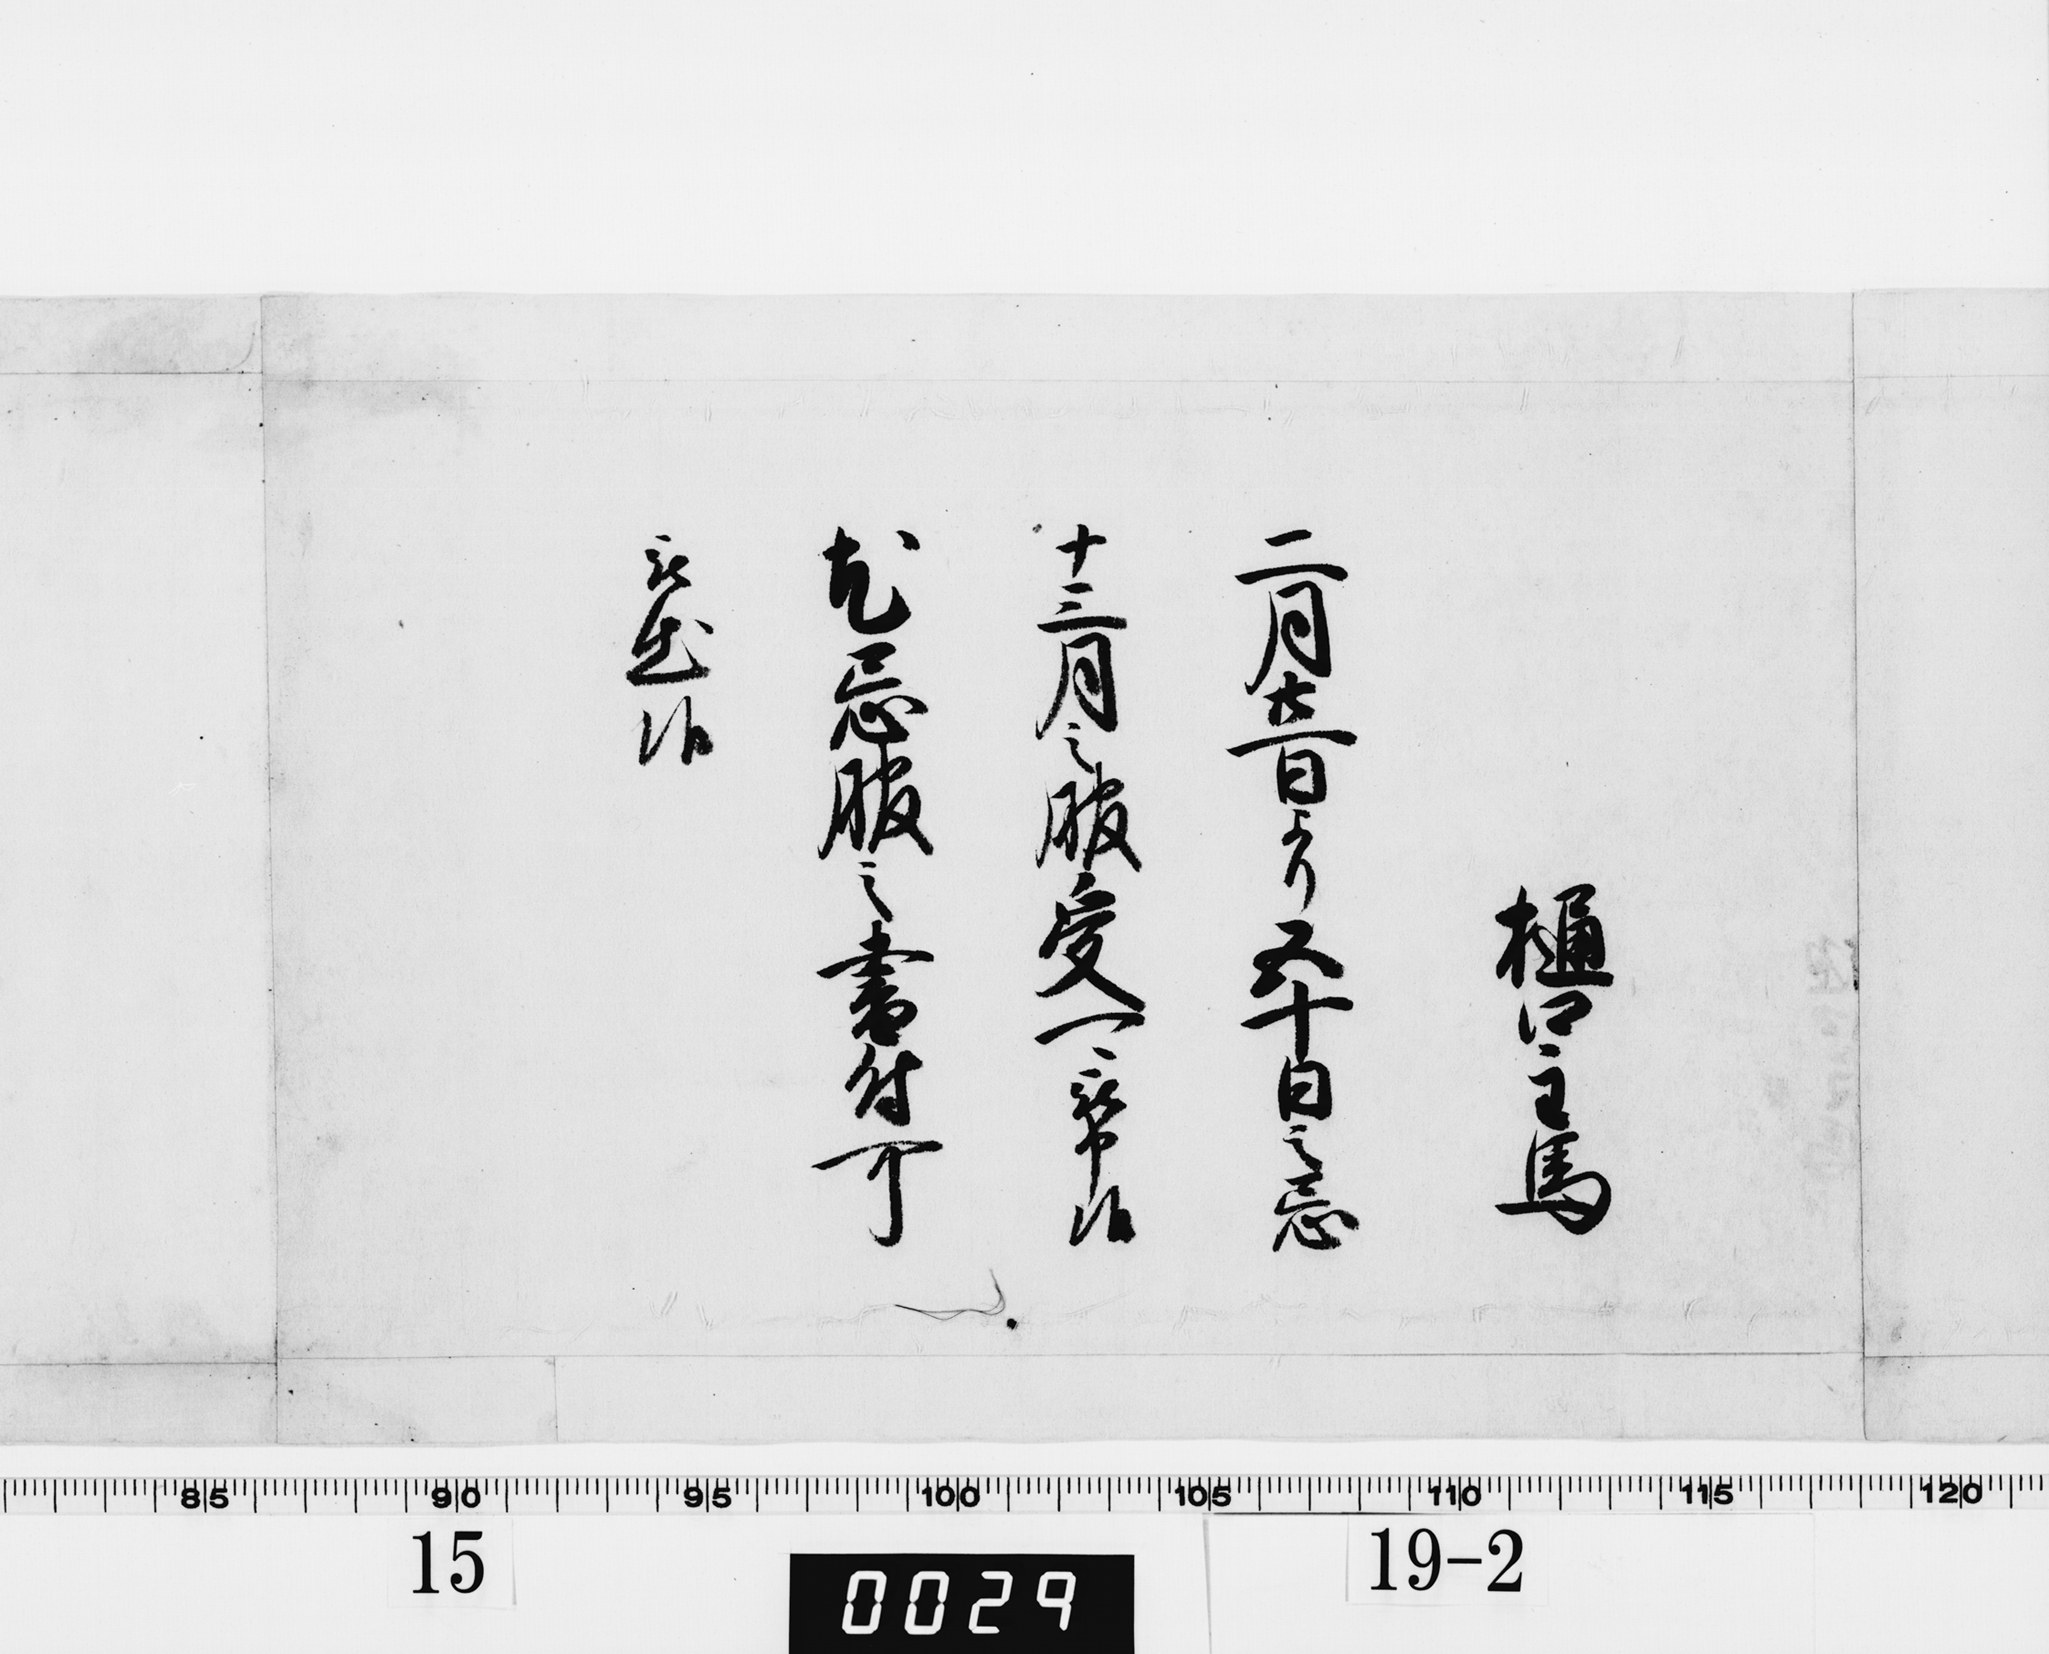 樋口主馬
二月日より五十日之忌
十三月之服受可被申候
尤忌服之書付可
被出候
85 90 95 100 105 110 115 120
15
0029
19-2